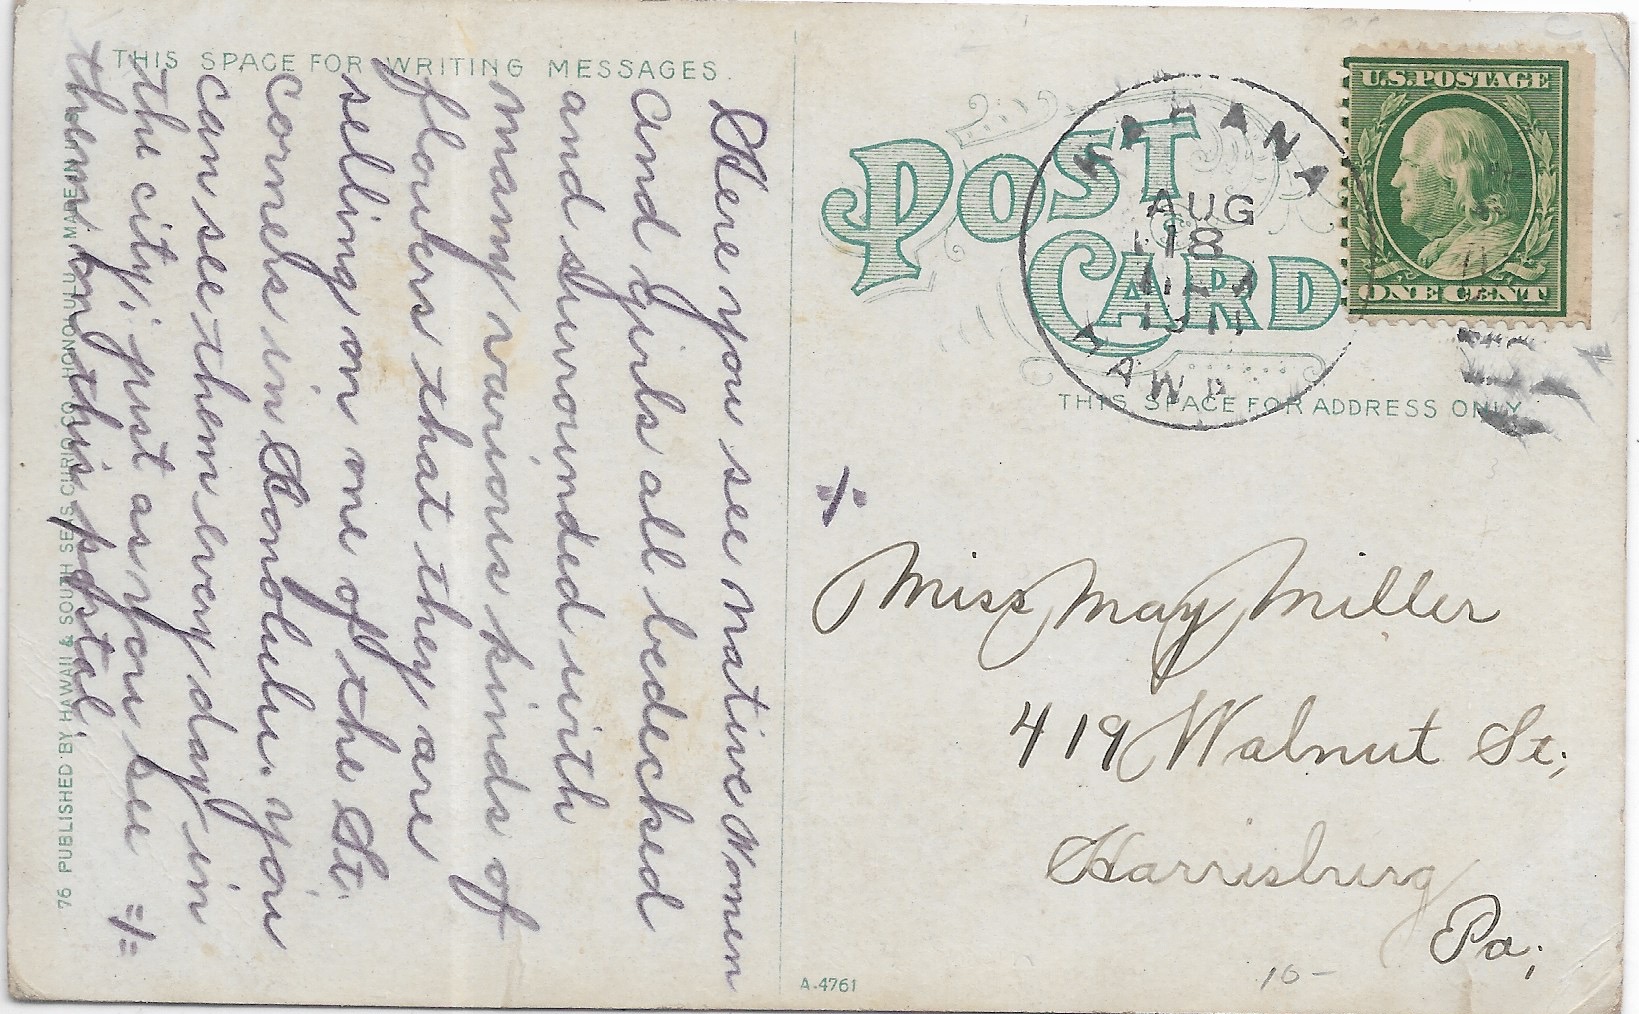 THIS SPACE FOR WRITING MESSAGES.
Here you see native Women
and girls all bedecked
and surrounded with
many various kinds of
flowers that they are
selling on one of the St.
corners in Honolulu. You
can see them every day in
the city, just as you see =/=
them on this postal.
76 PUBLISHED BY HAWAII & SOUTH SEAS CURIO CO. HONOLULU. MADE IN
POST
CARD
KAHANA
AUG
18
1911
HAWAII
U.S. POSTAGE
ONE CENT
THIS SPACE FOR ADDRESS ONLY
Miss May Miller
419 Walnut St;
Harrisburg
Pa;
16-
A-4761